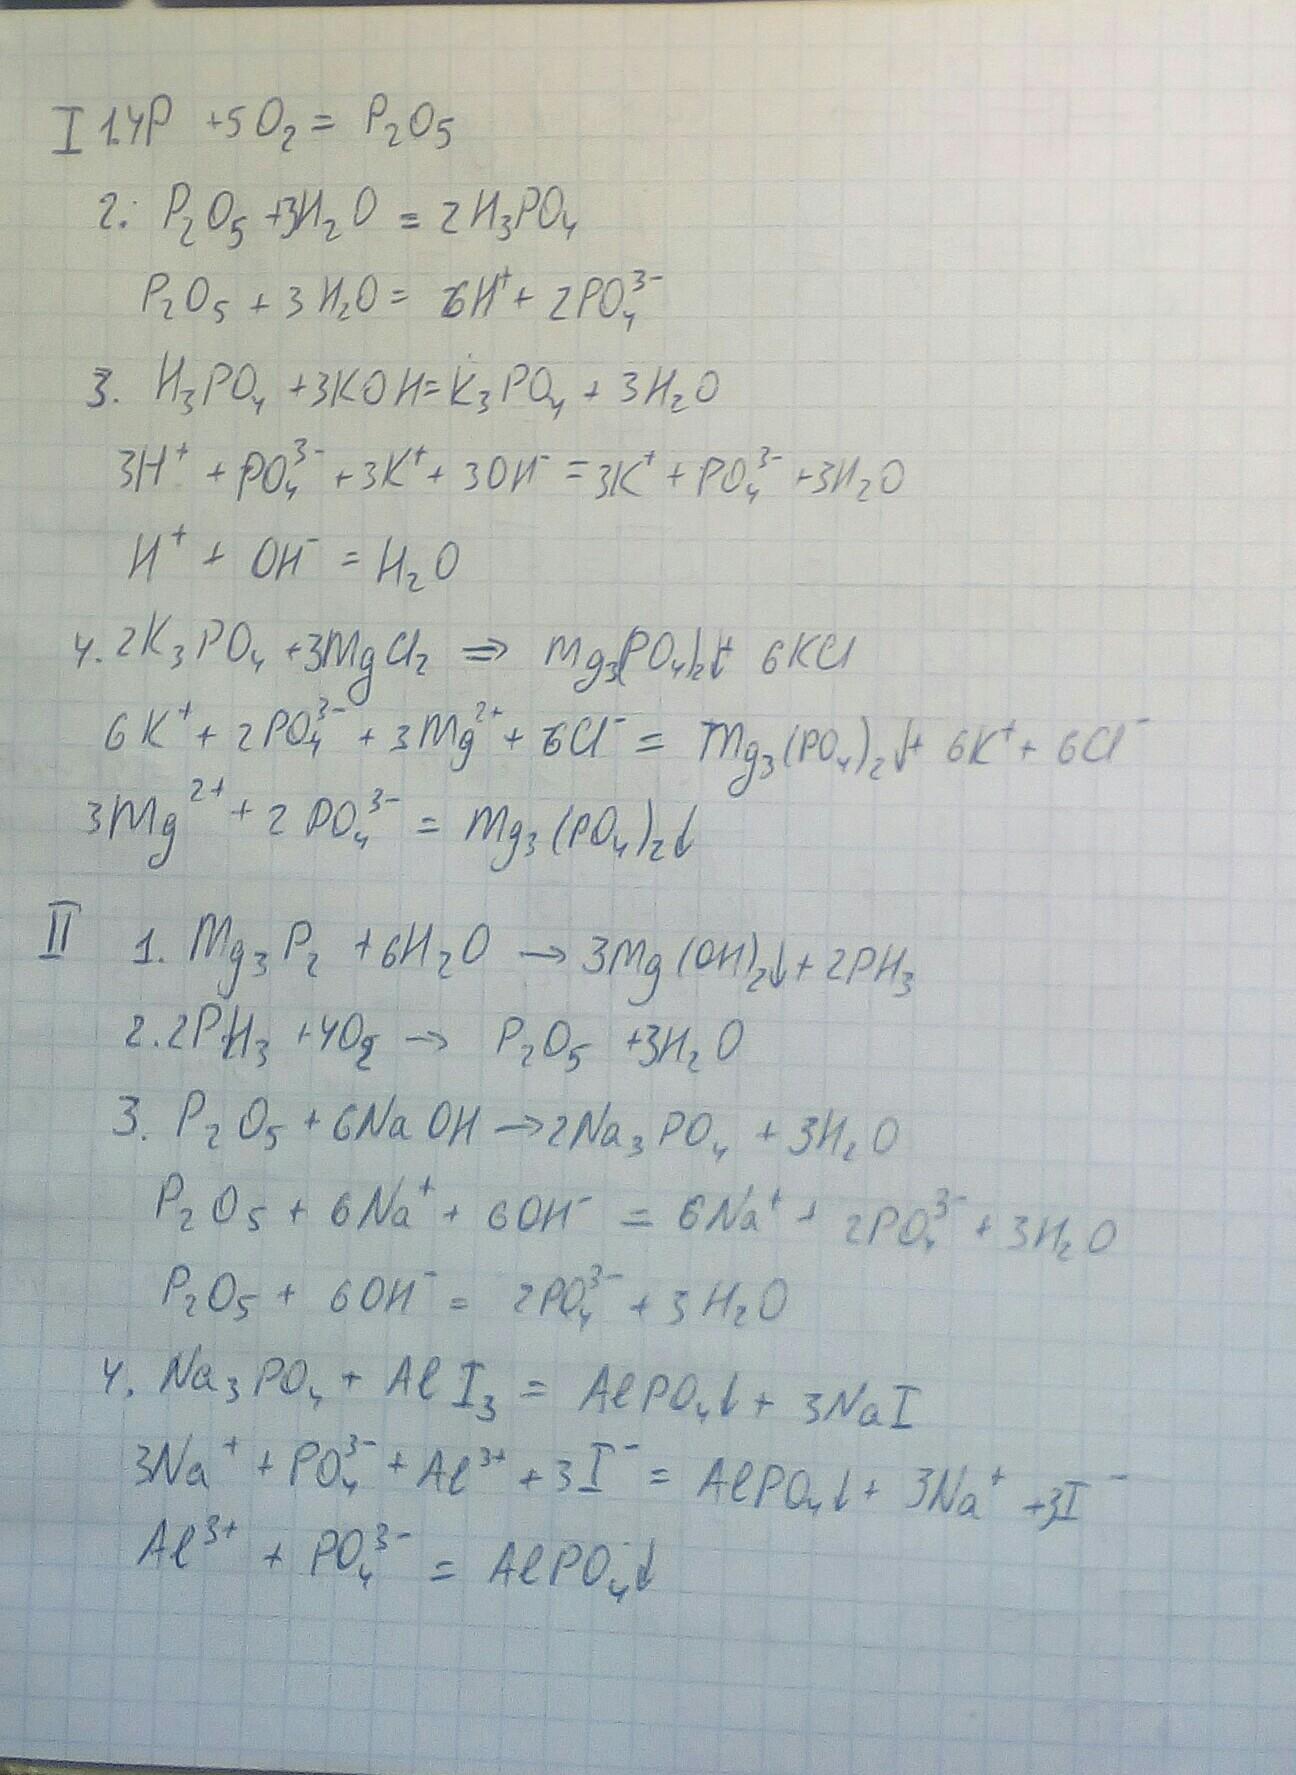 I 1.4P + 5O₂ = P₂O₅
2. P₂O₅ + 3H₂O = 2H₃PO₄
P₂O₅ + 3H₂O = 6H⁺ + 2PO₄³⁻
3. H₃PO₄ + 3KOH = K₃PO₄ + 3H₂O
3H⁺ + PO₄³⁻ + 3K⁺ + 3OH⁻ = 3K⁺ + PO₄³⁻ + 3H₂O
H⁺ + OH⁻ = H₂O
4. 2K₃PO₄ + 3MgCl₂ ⇒ Mg₃(PO₄)₂↓ + 6KCl
6K⁺ + 2PO₄³⁻ + 3Mg²⁺ + 6Cl⁻ = Mg₃(PO₄)₂↓ + 6K⁺ + 6Cl⁻
3Mg²⁺ + 2PO₄³⁻ = Mg₃(PO₄)₂↓
II 1. Mg₃P₂ + 6H₂O → 3Mg(OH)₂↓ + 2PH₃
2. 2PH₃ + 4O₂ → P₂O₅ + 3H₂O
3. P₂O₅ + 6NaOH → 2Na₃PO₄ + 3H₂O
P₂O₅ + 6Na⁺ + 6OH⁻ = 6Na⁺ + 2PO₄³⁻ + 3H₂O
P₂O₅ + 6OH⁻ = 2PO₄³⁻ + 3H₂O
4. Na₃PO₄ + AlI₃ = AlPO₄↓ + 3NaI
3Na⁺ + PO₄³⁻ + Al³⁺ + 3I⁻ = AlPO₄↓ + 3Na⁺ + 3I⁻
Al³⁺ + PO₄³⁻ = AlPO₄↓